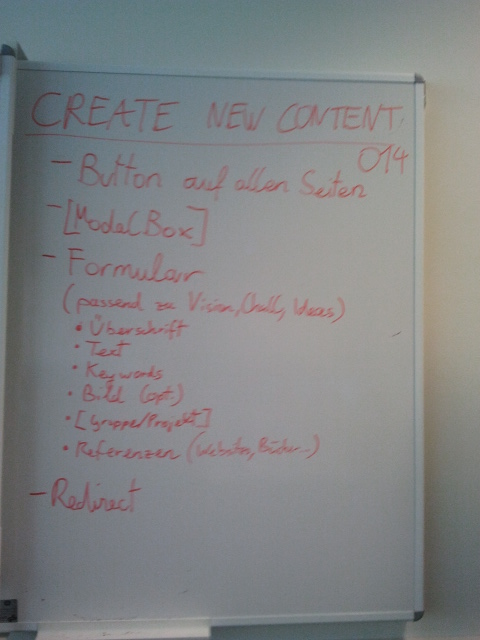 CREATE NEW CONTENT
014
- Button auf allen Seiten
- [ModalBox]
- Formular
(passend zu Vision, Chall, Ideas)
• Überschrift
• Text
• Keywords
• Bild (opt.)
• [Gruppe/Projekt]
• Referenzen (Websites, Bücher...)
- Redirect